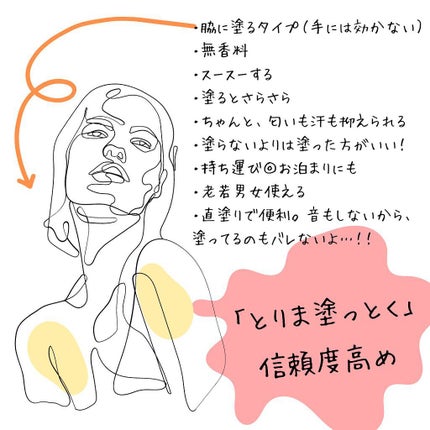 ・脇に塗るタイプ(手には効かない)
・無香料
・スースーする
・塗るとさらさら
・ちゃんと、匂いも汗も抑えられる
・塗らないよりは塗った方がいい!
・持ち運び◎お泊まりにも
・老若男女使える
・直塗りで便利。音もしないから、
塗ってるのもバレないよ…!!
「とりま塗っとく」
信頼度高め